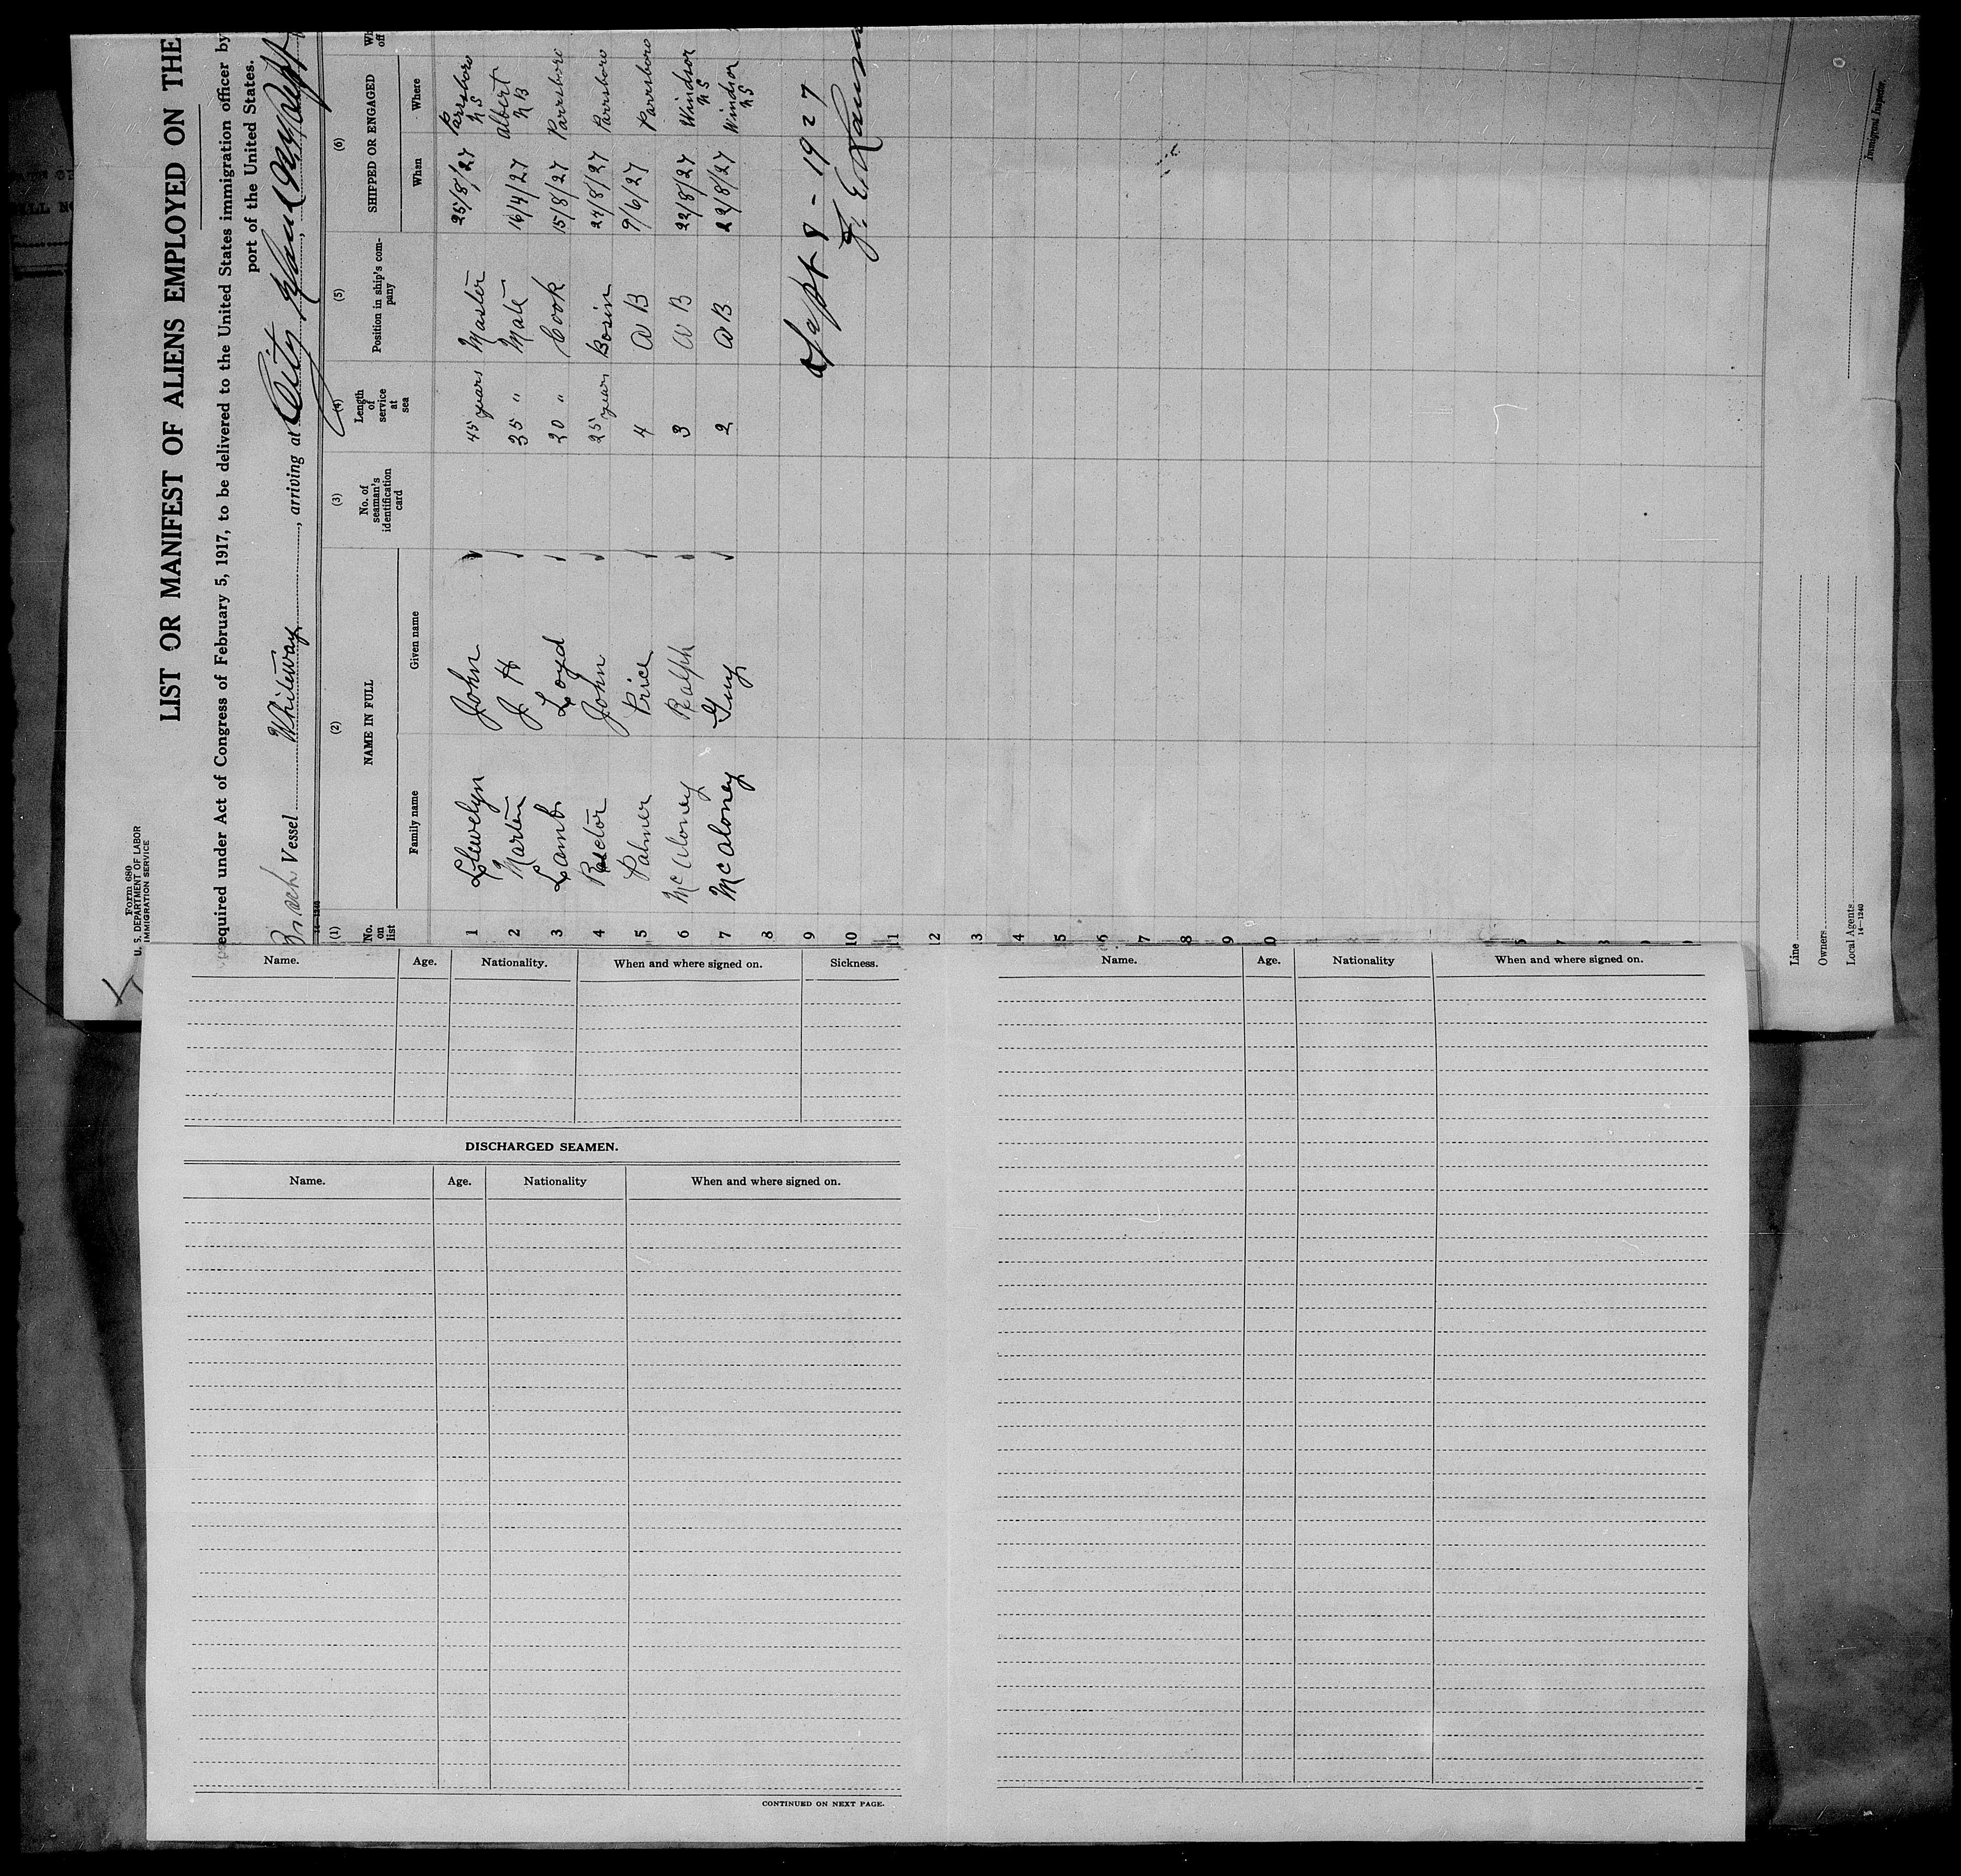 Form 680
U. S. DEPARTMENT OF LABOR
IMMIGRATION SERVICE
LIST OR MANIFEST OF ALIENS EMPLOYED ON THE
equired under Act of Congress of February 5, 1917, to be delivered to the United States immigration officer by
port of the United States.
Br sch Vessel Whiteway, arriving at City Island N.Y. Sept
(1) (2) (3) (4) (5) (6)
No. on list NAME IN FULL No. of seaman's identification card Length of service at sea Position in ship's company SHIPPED OR ENGAGED
Family name Given name When Where
1 Llewelyn John 45 years Master 25/8/27 Parrsboro NS
2 Martin J H 35 " Mate 16/4/27 Albert NB
3 Lamb Loyd 20 " Cook 15/8/27 Parrsboro
4 Rector John 25 years Bosin 24/8/27 Parrsboro
5 Palmer Price 4 AB 9/6/27 Parrsboro
6 McAloney Ralph 3 AB 22/8/27 Windsor NS
7 McAloney Guy 2 AB 22/8/27 Windsor NS
8
9 Sept 8 - 1927
10 J. E.
11
12
13
4
5
6
7
8
9
0
Line
Owners
Local Agents
14—1240
Immigrant Inspector.
Name. Age. Nationality. When and where signed on. Sickness.
DISCHARGED SEAMEN.
Name. Age. Nationality When and where signed on.
CONTINUED ON NEXT PAGE.
Name. Age. Nationality When and where signed on.